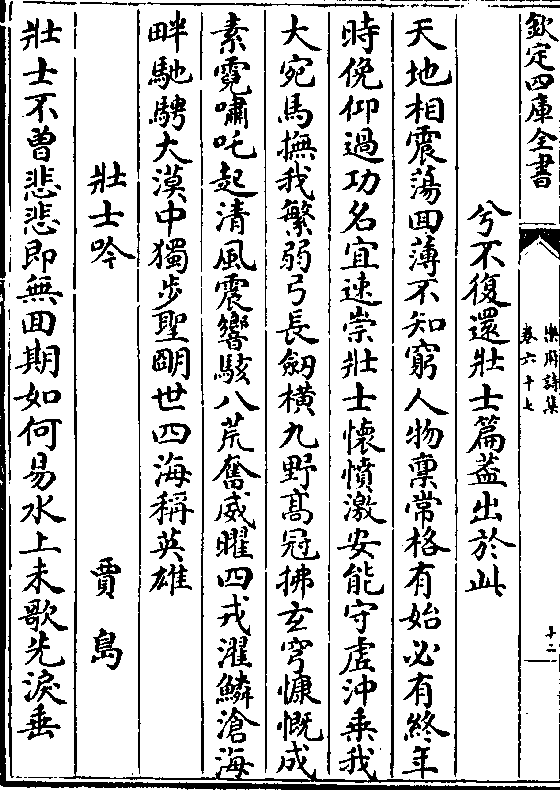 欽定四庫全書
樂府詩集
卷六十七
十二
兮不復還壯士篇蓋出於此
天地相震蕩回薄不知窮人物稟常格有始必有終年
時俛仰過功名宜速崇壯士懷憤激安能守虛沖乘我
大宛馬撫我繁弱弓長劒橫九野高冠拂玄穹慷慨成
素霓嘯吒起清風震響駭八荒奮威曜四戎濯鱗滄海
畔馳騁大漠中獨步聖朙世四海稱英雄
壯士吟　賈島
壯士不曾悲悲即無回期如何易水上未歌先淚垂